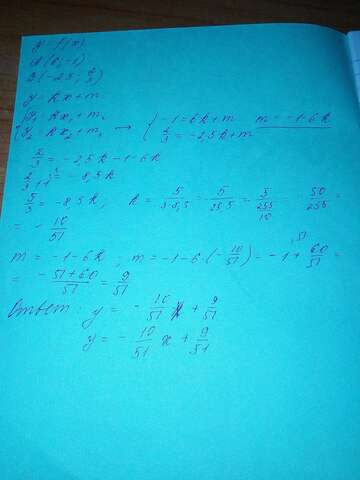 y = f(x)
A(6; -1)
B(-2,5; 2/3)
y = kx + m
{ y₁ = kx₁ + m, → { -1 = 6k + m m = -1 - 6k
{ y₂ = kx₂ + m, { 2/3 = -2,5k + m
2/3 = -2,5k - 1 - 6k
2/3 + 1 = -8,5k
5/3 = -8,5k, k = 5/3·8,5 = 5/25,5 = 5/255/10 50/255 =
= - 10/51
m = -1 - 6k ; m = -1 - 6·(-10/51) = -1 + 60/51 =
= -51+60/51 = 9/51
Ответ: y = - 10/51 x + 9/51
y = - 10/51 x + 9/51